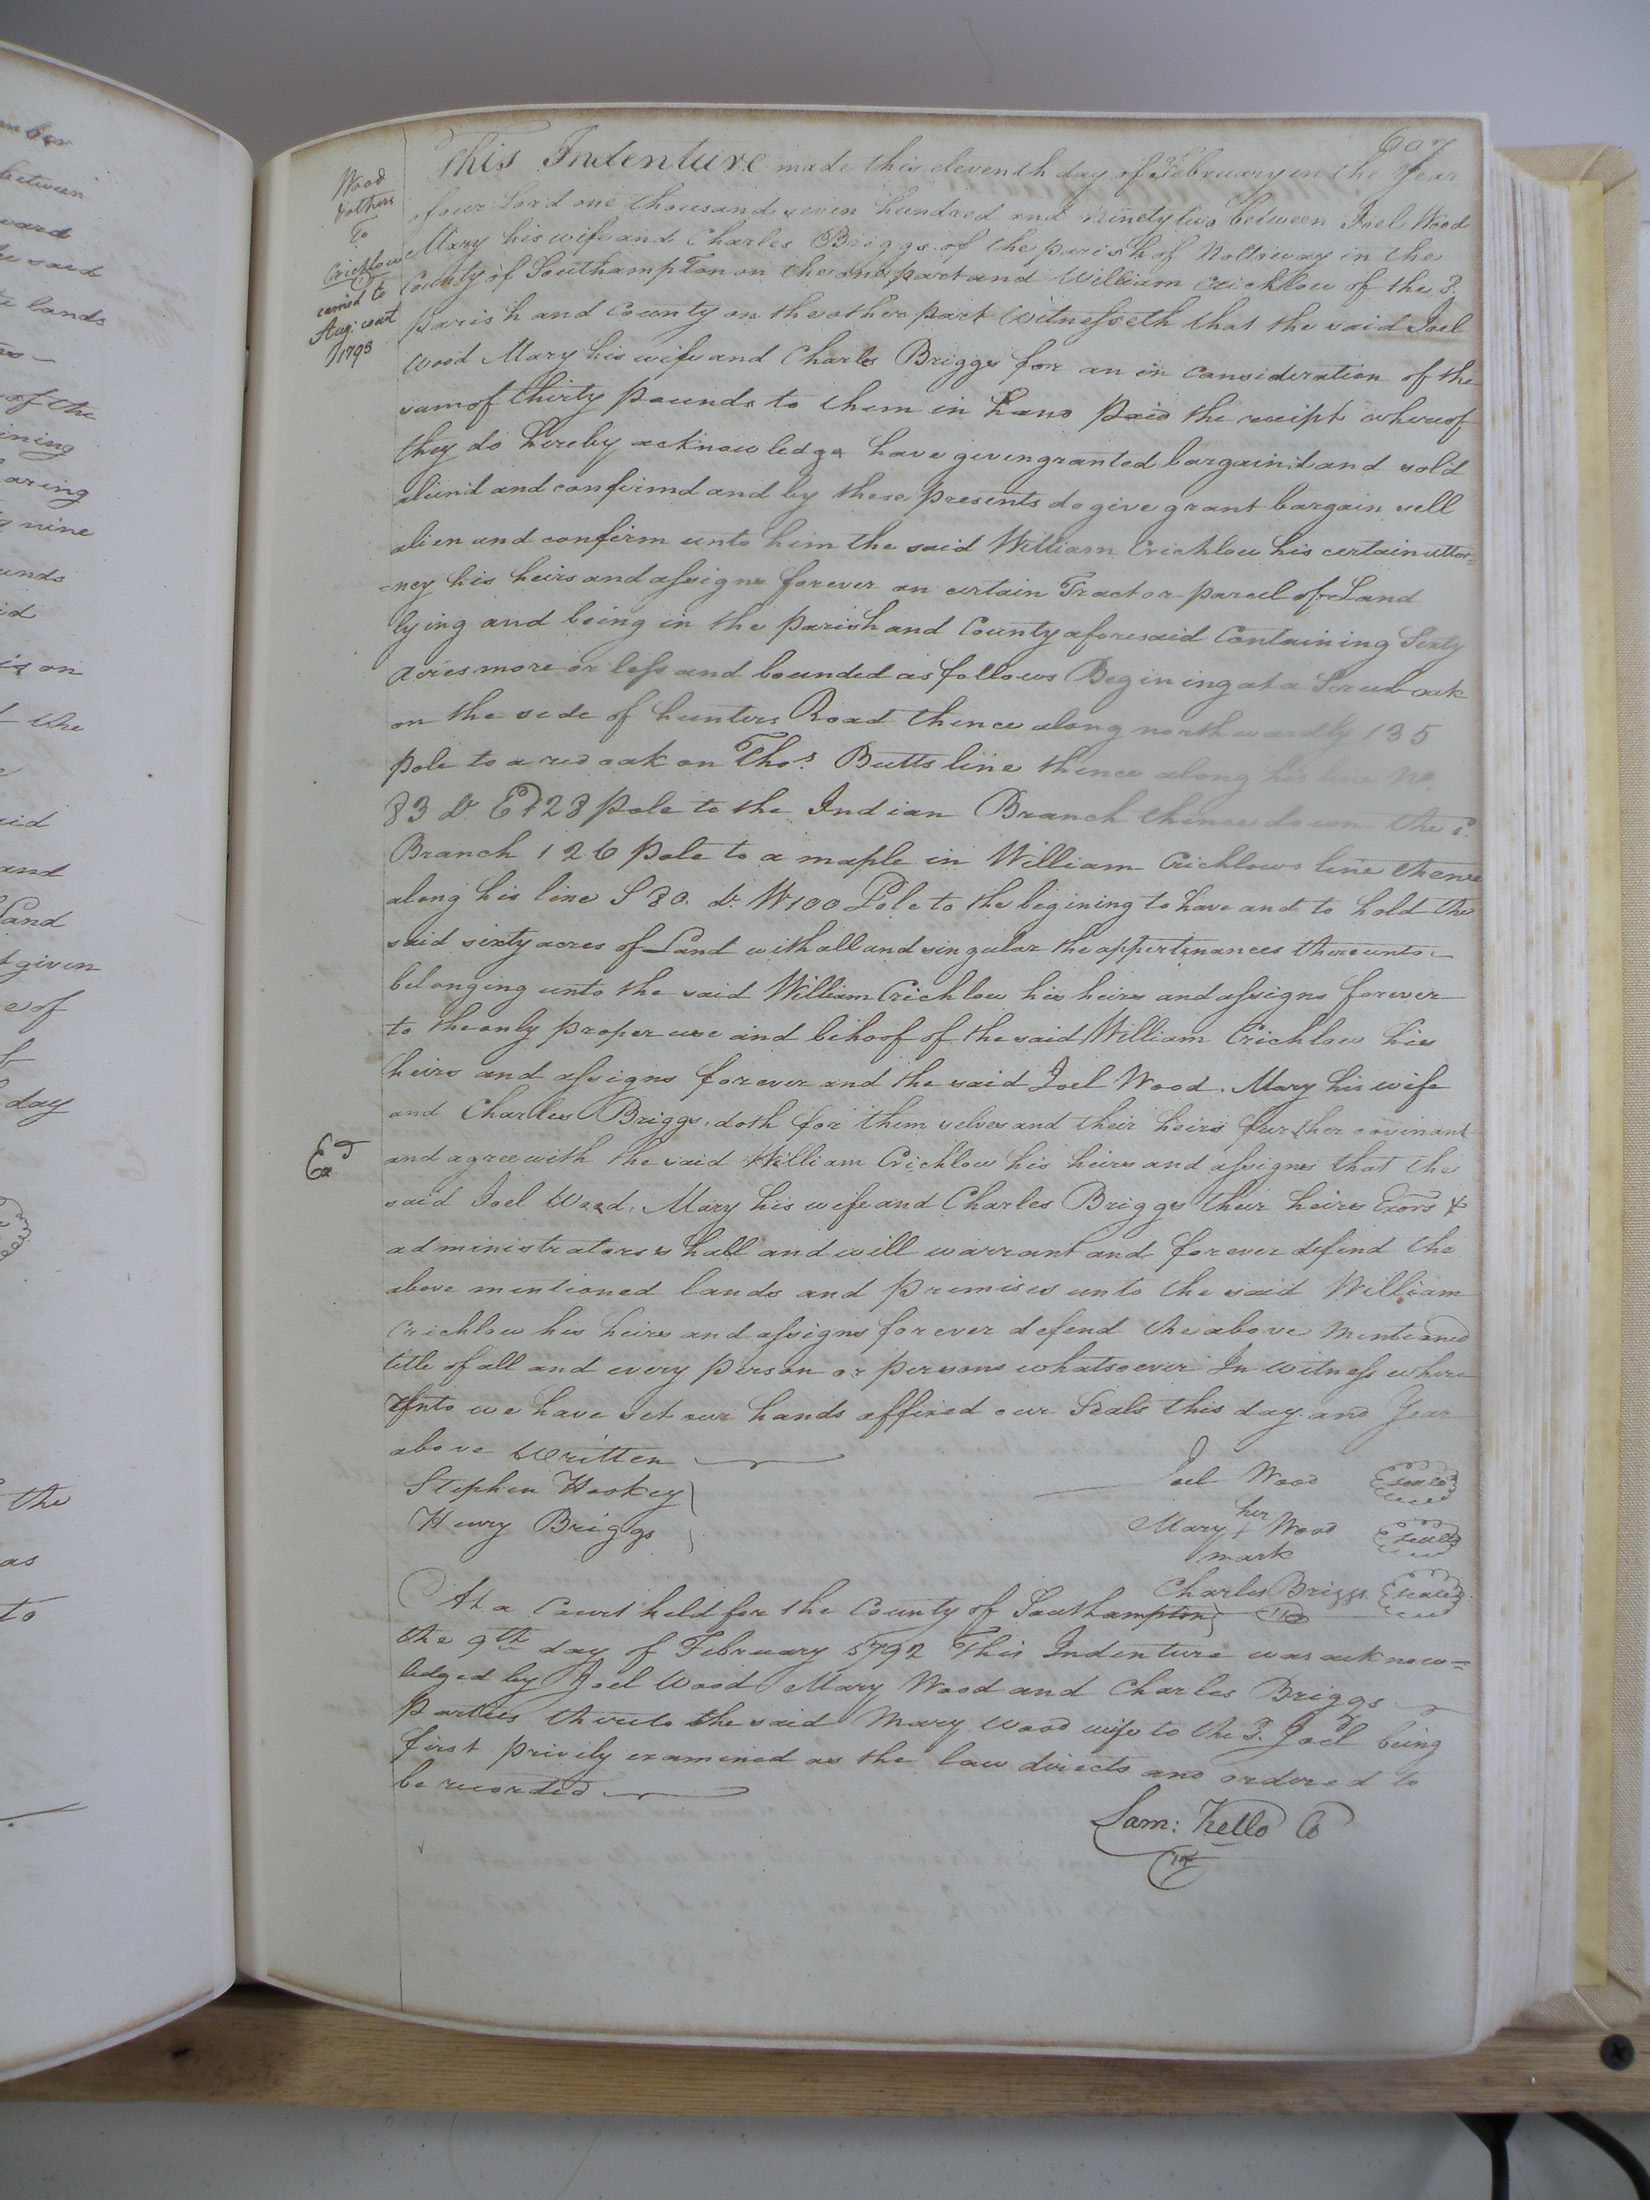 607
Wood
& others
To
Cricklow
carried to
Aug: court
1793
This Indenture made this eleventh day of February in the Year
of our Lord one thousand seven hundred and Ninety two between Joel Wood
Mary his wife and Charles Briggs of the parish of Nottoway in the
County of Southampton on the one part and William Cricklow of the sd.
parish and County on the other part Witnesseth that the said Joel
Wood Mary his wife and Charles Briggs for an in Consideration of the
sum of thirty pounds to them in hand paid the receipt whereof
they do hereby acknowledge have given granted bargaind and sold
aliend and confirmd and by these presents do give grant bargain sell
alien and confirm unto him the said William Cricklow his certain attor=
=ney his heirs and assigns forever an certain Tract or parcel of Land
lying and being in the parish and County aforesaid Containing Sixty
Acres more or less and bounded as follows Begining at a Scrub oak
on the side of hunters Road thence along northwardly 135
pole to a red oak on Thos. Butts line thence along his line No.
83 d. Et 28 pole to the Indian Branch thence down the sd.
Branch 126 pole to a maple in William Cricklows line thence
along his line S 80. d. W 100 Pole to the begining to have and to hold the
said sixty acres of Land with all and singular the appertinances thereunto
belonging unto the said William Cricklow his heirs and assigns forever
to the only proper use and behoof of the said William Cricklow his
heirs and assigns forever and the said Joel Wood. Mary his wife
and Charles Briggs. doth for them selves and their heirs further covinant
Exd
and agree with the said William Cricklow his heirs and assigns that the
said Joel Wood, Mary his wife and Charles Briggs their heirs Exors &
administrators shall and will warrant and forever defend the
above mentioned lands and premises unto the said William
Cricklow his heirs and assigns forever defend the above Mentioned
title of all and every person or persons whatsoever In witness where
unto we have set our hands affixed our Seals this day and Year
above Written
Stephen Hookey
Henry Briggs
Joel Wood seald
her
Mary + Wood seald
mark
Charles Briggs seald
At a Court held for the County of Southampton
the 9th day of February 1792 This Indenture was acknow=
ledged by Joel Wood Mary Wood and Charles Briggs
Parties thereto the said Mary Wood wife to the sd. Joel being
first privily examined as the law directs and ordered to
be recorded
Sam: Kello C
mber
between
ward
said
lands
of the
ining
aring
nine
unds
id
is on
the
said
and
Land
given
e of
day
the
as
to